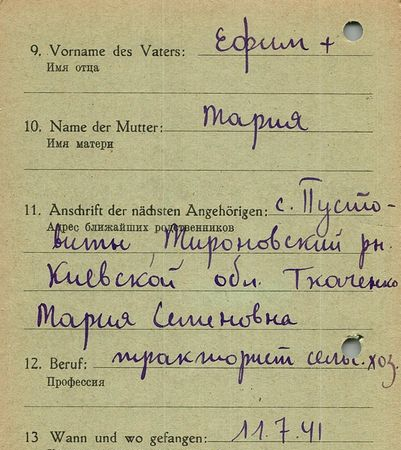 9. Vorname des Vaters: Ефим +
Имя отца
10. Name der Mutter: Мария
Имя матери
11. Anschrift der nächsten Angehörigen: с. Пусто-
Адрес ближайших родственников
виты Мироновский рн.
Киевской обл. Ткаченко
Мария Семеновна
12. Beruf: тракторист сельс. хоз.
Профессия
13 Wann und wo gefangen: 11.7.41